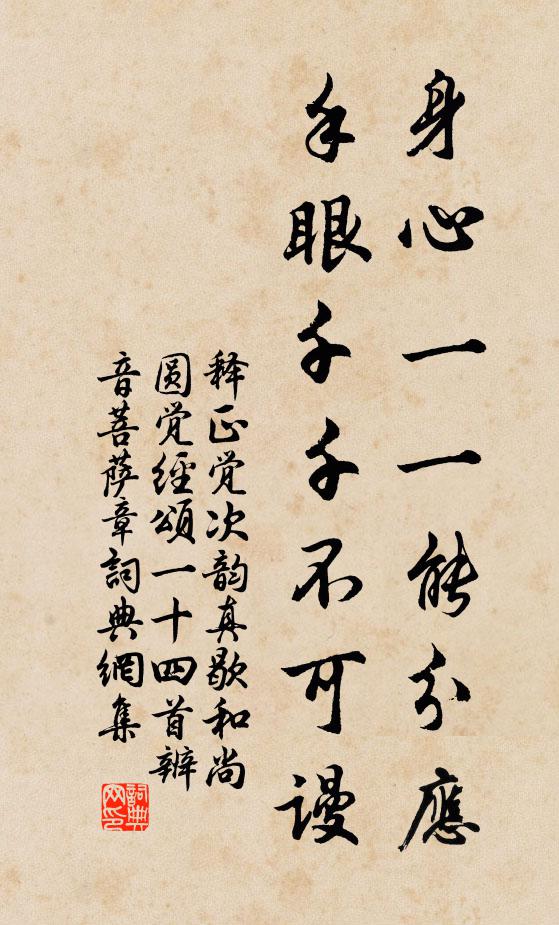 身心一一能分應
手眼千千不可謾
释正觉次韵真歇和尚
圆觉經頌一十四首辨
音菩萨章詞典網集
詞典
网印